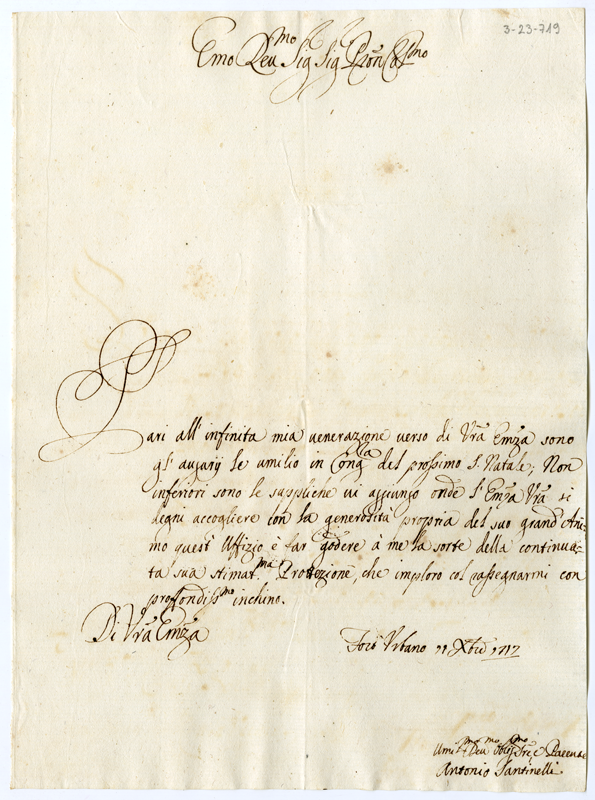 3-23-719
Emo Reu.mo Sig Sig Pron Col.mo
Pari all' infinita mia uenerazione uerso di Vrã Emz̃a sono
gl' augurÿ Le umilio in Cong.a del prossimo S. Natale; Non
inferiori sono le suppliche ui aggiungo onde l' Emz̃a Vrã si
degni accogliere con la generosità propria del suo grand' Ani=
mo quest' Uffizio è far godere à me la sorte della continua=
ta sua stimat.ma Protezione, che imploro col rassegnarmi con
profondiss.mo inchino.
Di Vrã Emz̃a
Forte Vrbano 11 Xbre 1717
Umil.mo Deu.mo Obl.mo
Antonio Santinelli